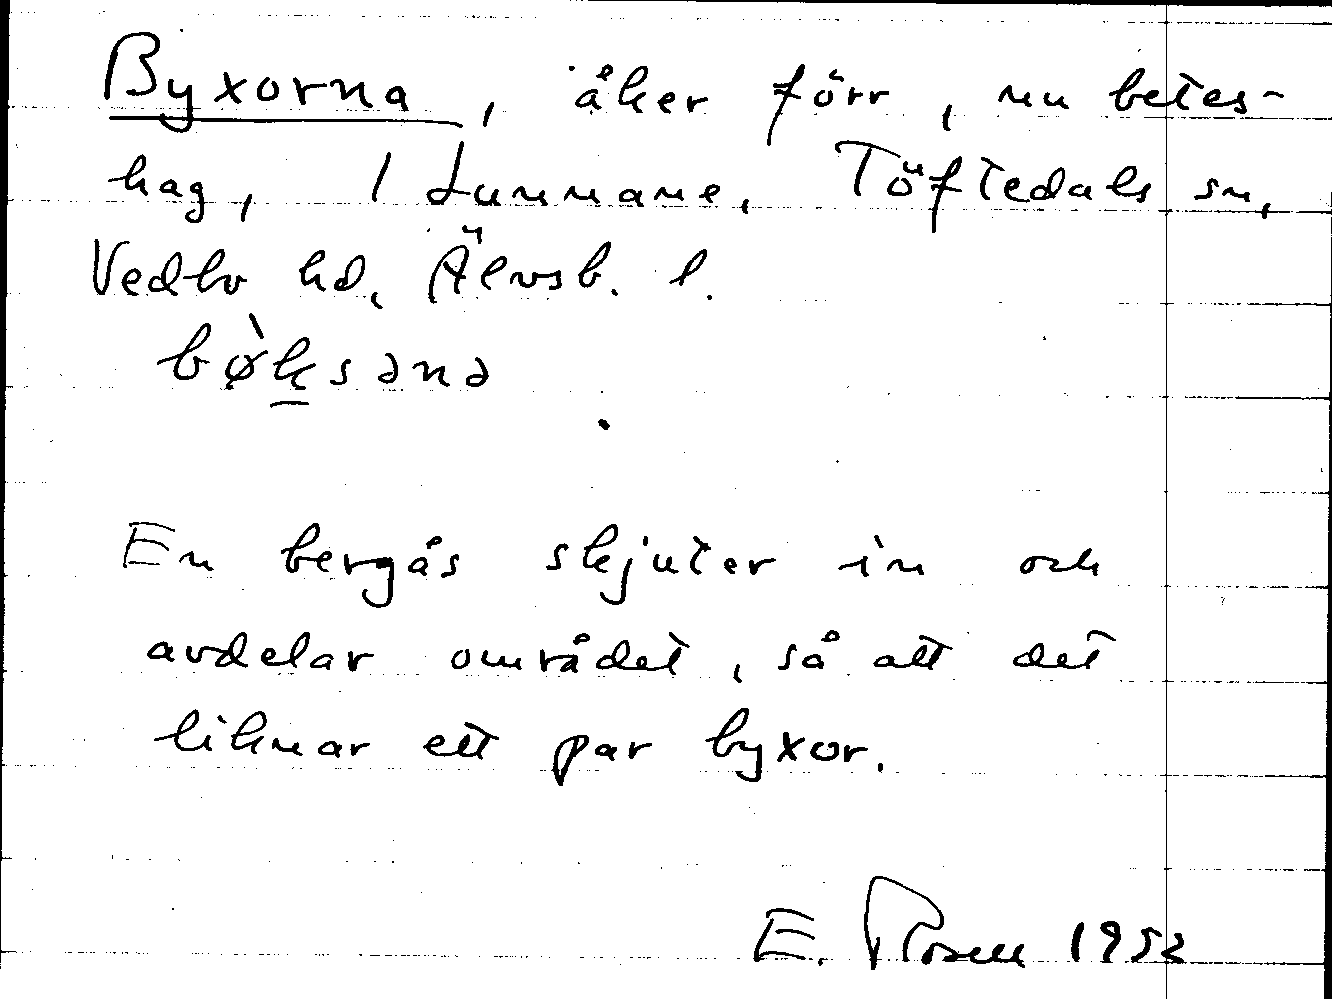 Byxorna, åker förr, nu betes-
hag, 1 Lunnane, Töftedals sn,
Vedbo hd, Älvsb. l.
bø̀k̲sənə
En bergås skjuter in och
avdelar området, så att det
liknar ett par byxor.
E. Rosell 1952